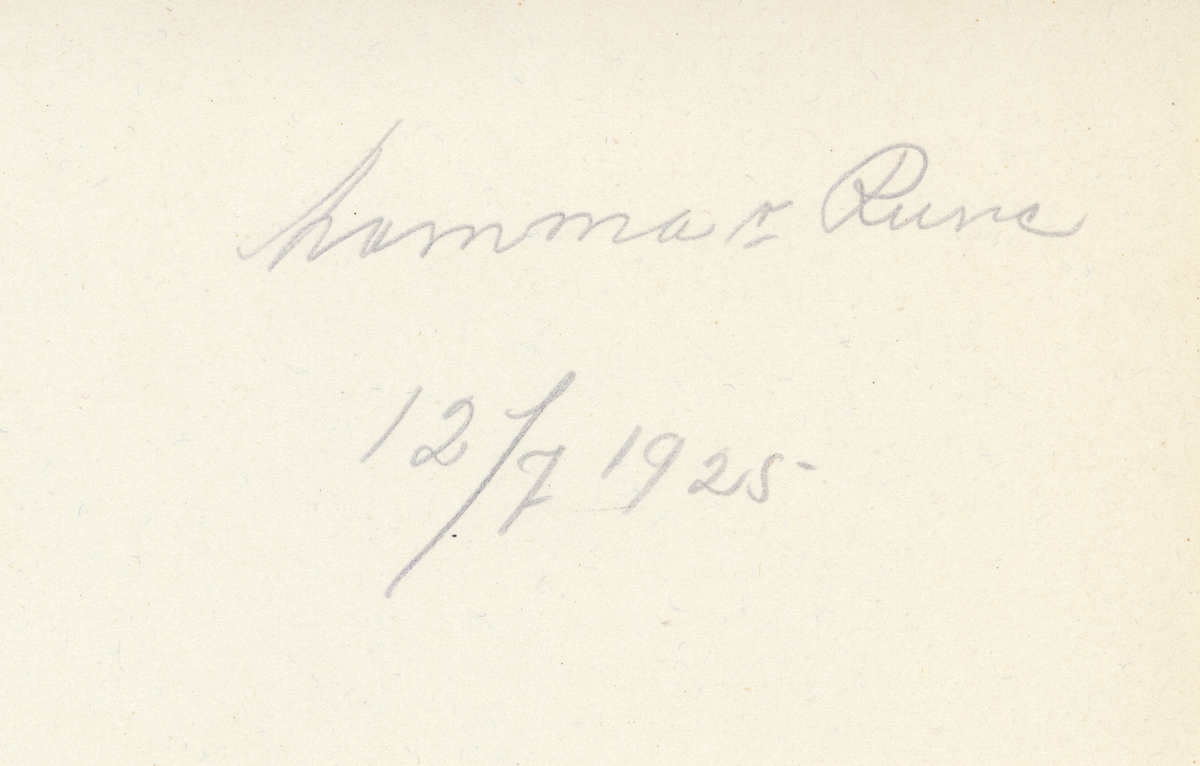 Mamma o Rune
12/7 1925